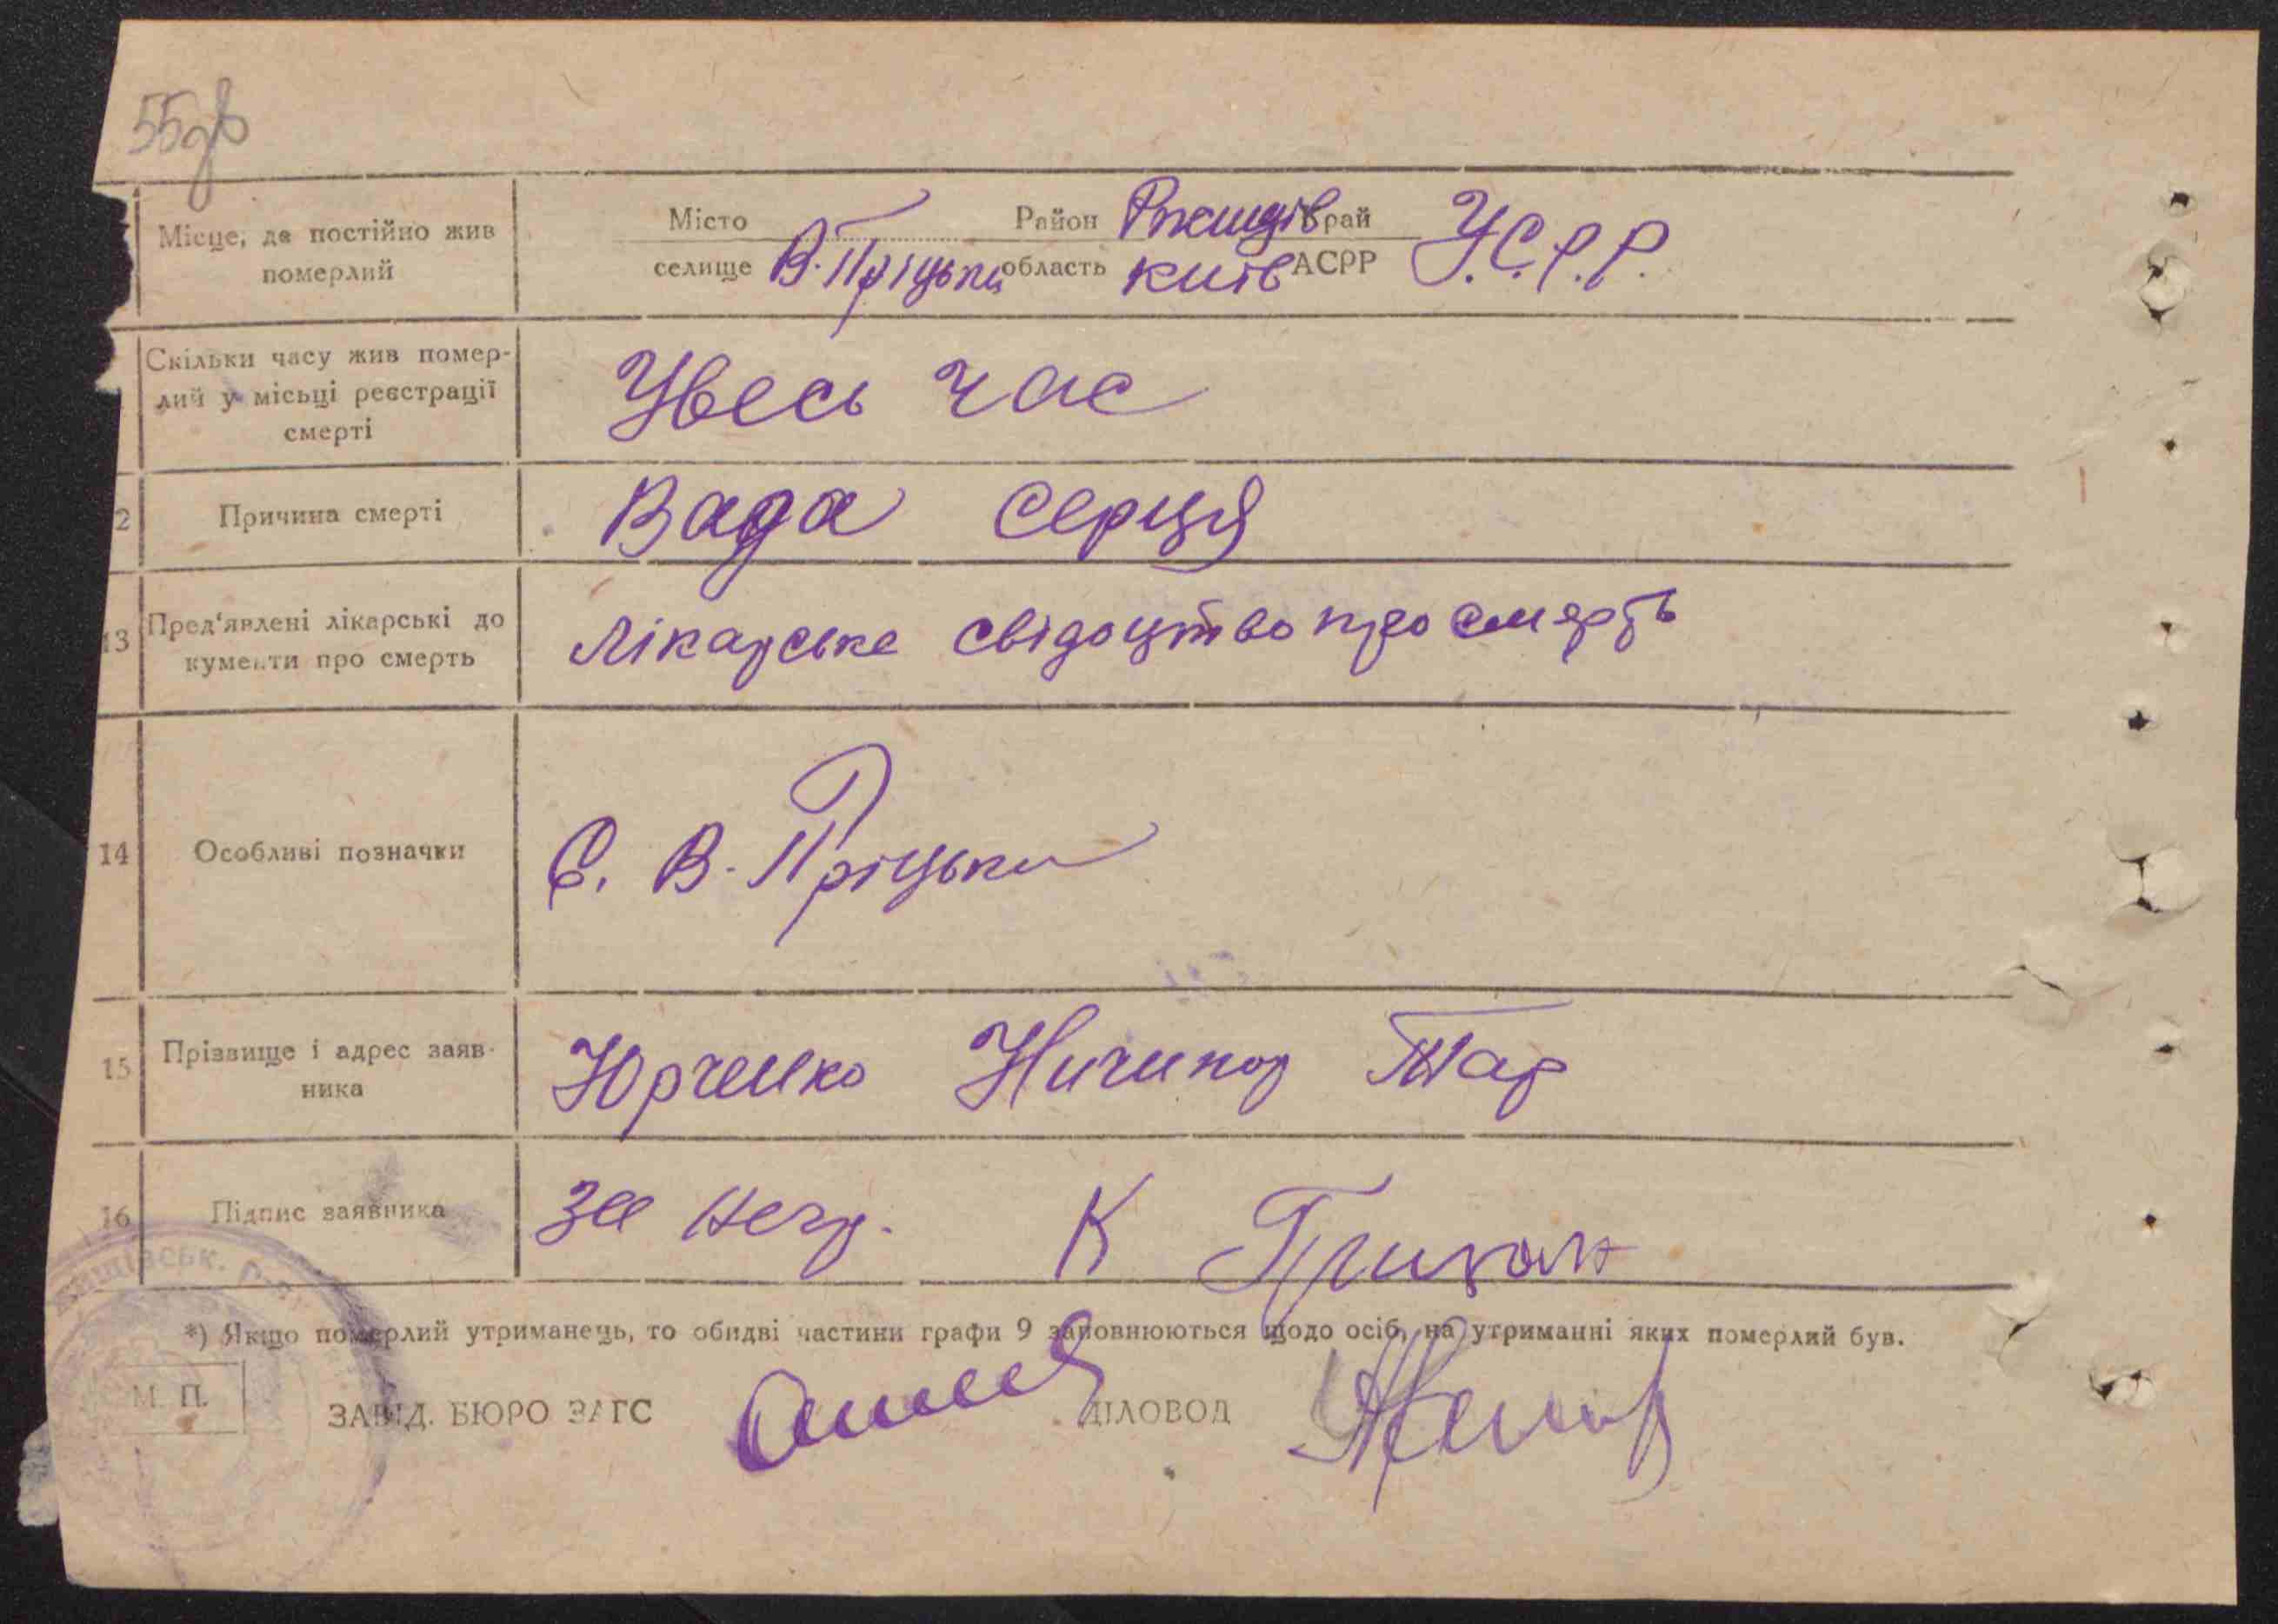 55зв
Місто Район Ржищів Край У.С.Р.Р.
Місце, де постійно жив
померлий
селище В. Пріцьки область Київ АСРР
Скільки часу жив помер-
лий у місьці реєстрації
смерті
Увесь час
2 Причина смерті Вада серця
13 Пред'явлені лікарські до
кументи про смерть
Лікарське свідоцтво про смерть
14 Особливі позначки С. В. Пріцьки
15 Прізвище і адрес заяв-
ника
Юрченко Ничипор Тар
16 Підпис заявника За негр. К
*) Якщо померлий утриманець, то обидві частини графи 9 заповнюються щодо осіб, на утриманні яких померлий був.
М. П.
ЗАВІД. БЮРО ЗАГС ДІЛОВОД